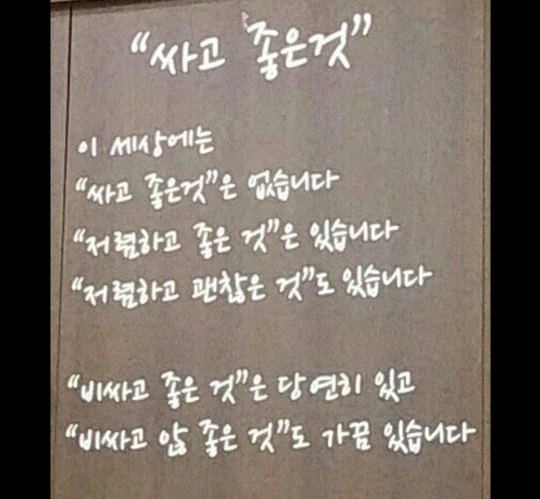 “싸고 좋은것”
이 세상에는
“싸고 좋은것”은 없습니다
“저렴하고 좋은 것”은 있습니다
“저렴하고 괜찮은 것”도 있습니다
“비싸고 좋은 것”은 당연히 있고
“비싸고 않 좋은 것”도 가끔 있습니다